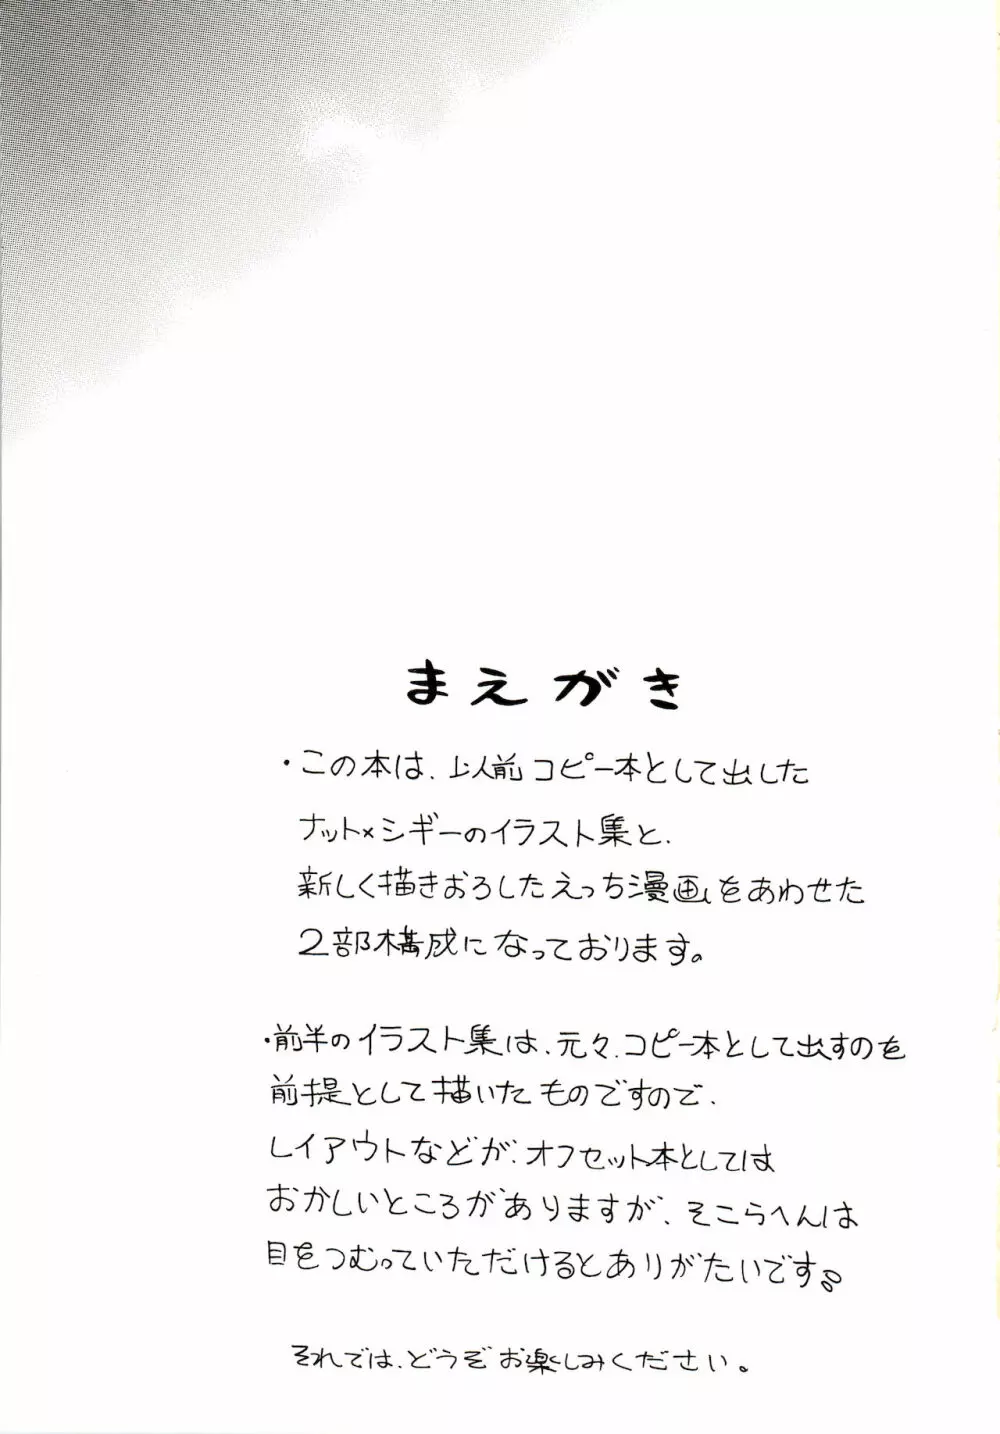 まえがき
・この本は、以前コピー本として出した
ナット×シギーのイラスト集と、
新しく描きおろしたえっち漫画をあわせた
2部構成になっております。
・前半のイラスト集は、元々、コピー本として出すのを
前提として描いたものですので、
レイアウトなどが、オフセット本としては
おかしいところがありますが、そこらへんは
目をつむっていただけるとありがたいです。
それでは、どうぞお楽しみください。